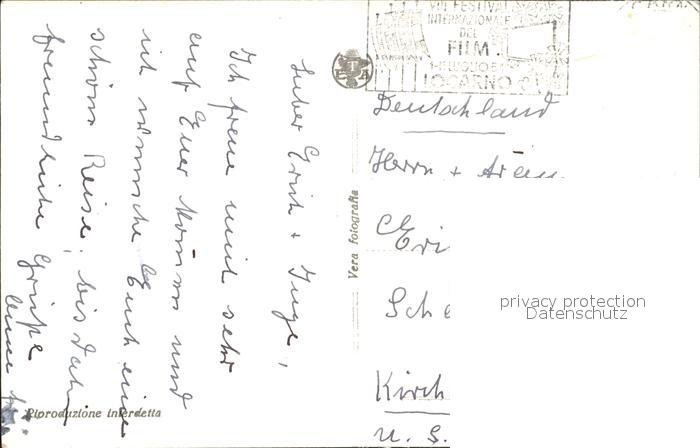 VIII FESTIVAL
INTERNAZIONALE
DEL
FILM
LOCARNO
ETA
Deutschland
Herrn +
Eri
Sche
Kirch
u. S.
Lieber Erich + Inge,
Ich freue mich sehr
auf Euer Kommen und
ich wünsche Euch eine
schöne Reise, bis dahin
freundliche Grüße
Vera fotografia
Riproduzione interdetta
privacy protection
Datenschutz